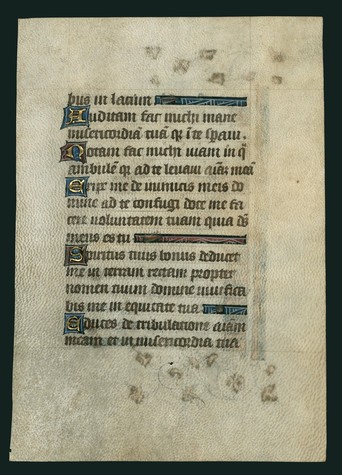 bus in lacum
Auditam fac michi mane
misericordiā tuā q̄ ī te sp̄aui.
Notam fac michi uiam in q̄
ambulē q̄ ad te leuaui aīam meā
Eripe me de inimicis meis do
mine ad te confugi doce me fa
cere uoluntatem tuam quia ds̄
meus es tu
Spiritus tuus bonus deducet
me in terram rectam propter
nomen tuum domine uiuifica
bis me in equitate tua
Educes de tribulatione aīam
meam et in misericordia tua